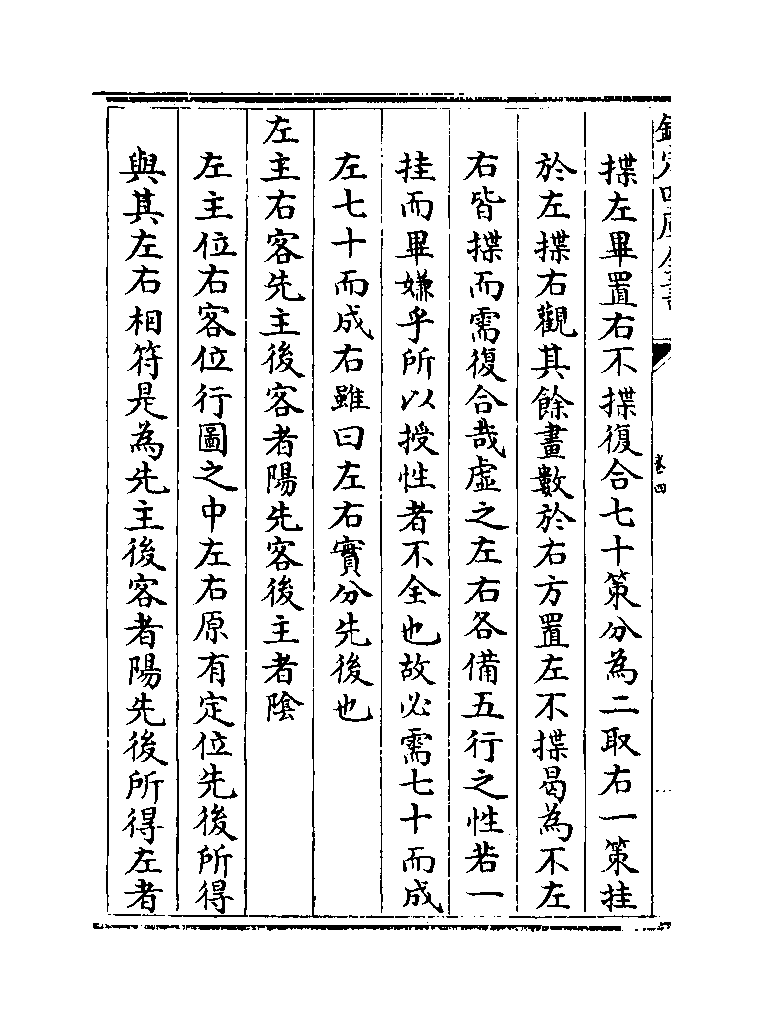 欽定四庫全書
卷四
揲左畢置右不揲復合七十策分為二取右一策挂
於左揲右觀其餘畫數於右方置左不揲曷為不左
右皆揲而需復合哉虛之左右各備五行之性若一
挂而畢嫌乎所以授性者不全也故必需七十而成
左七十而成右雖曰左右實分先後也
左主右客先主後客者陽先客後主者陰
左主位右客位行圖之中左右原有定位先後所得
與其左右相符是為先主後客者陽先後所得左者